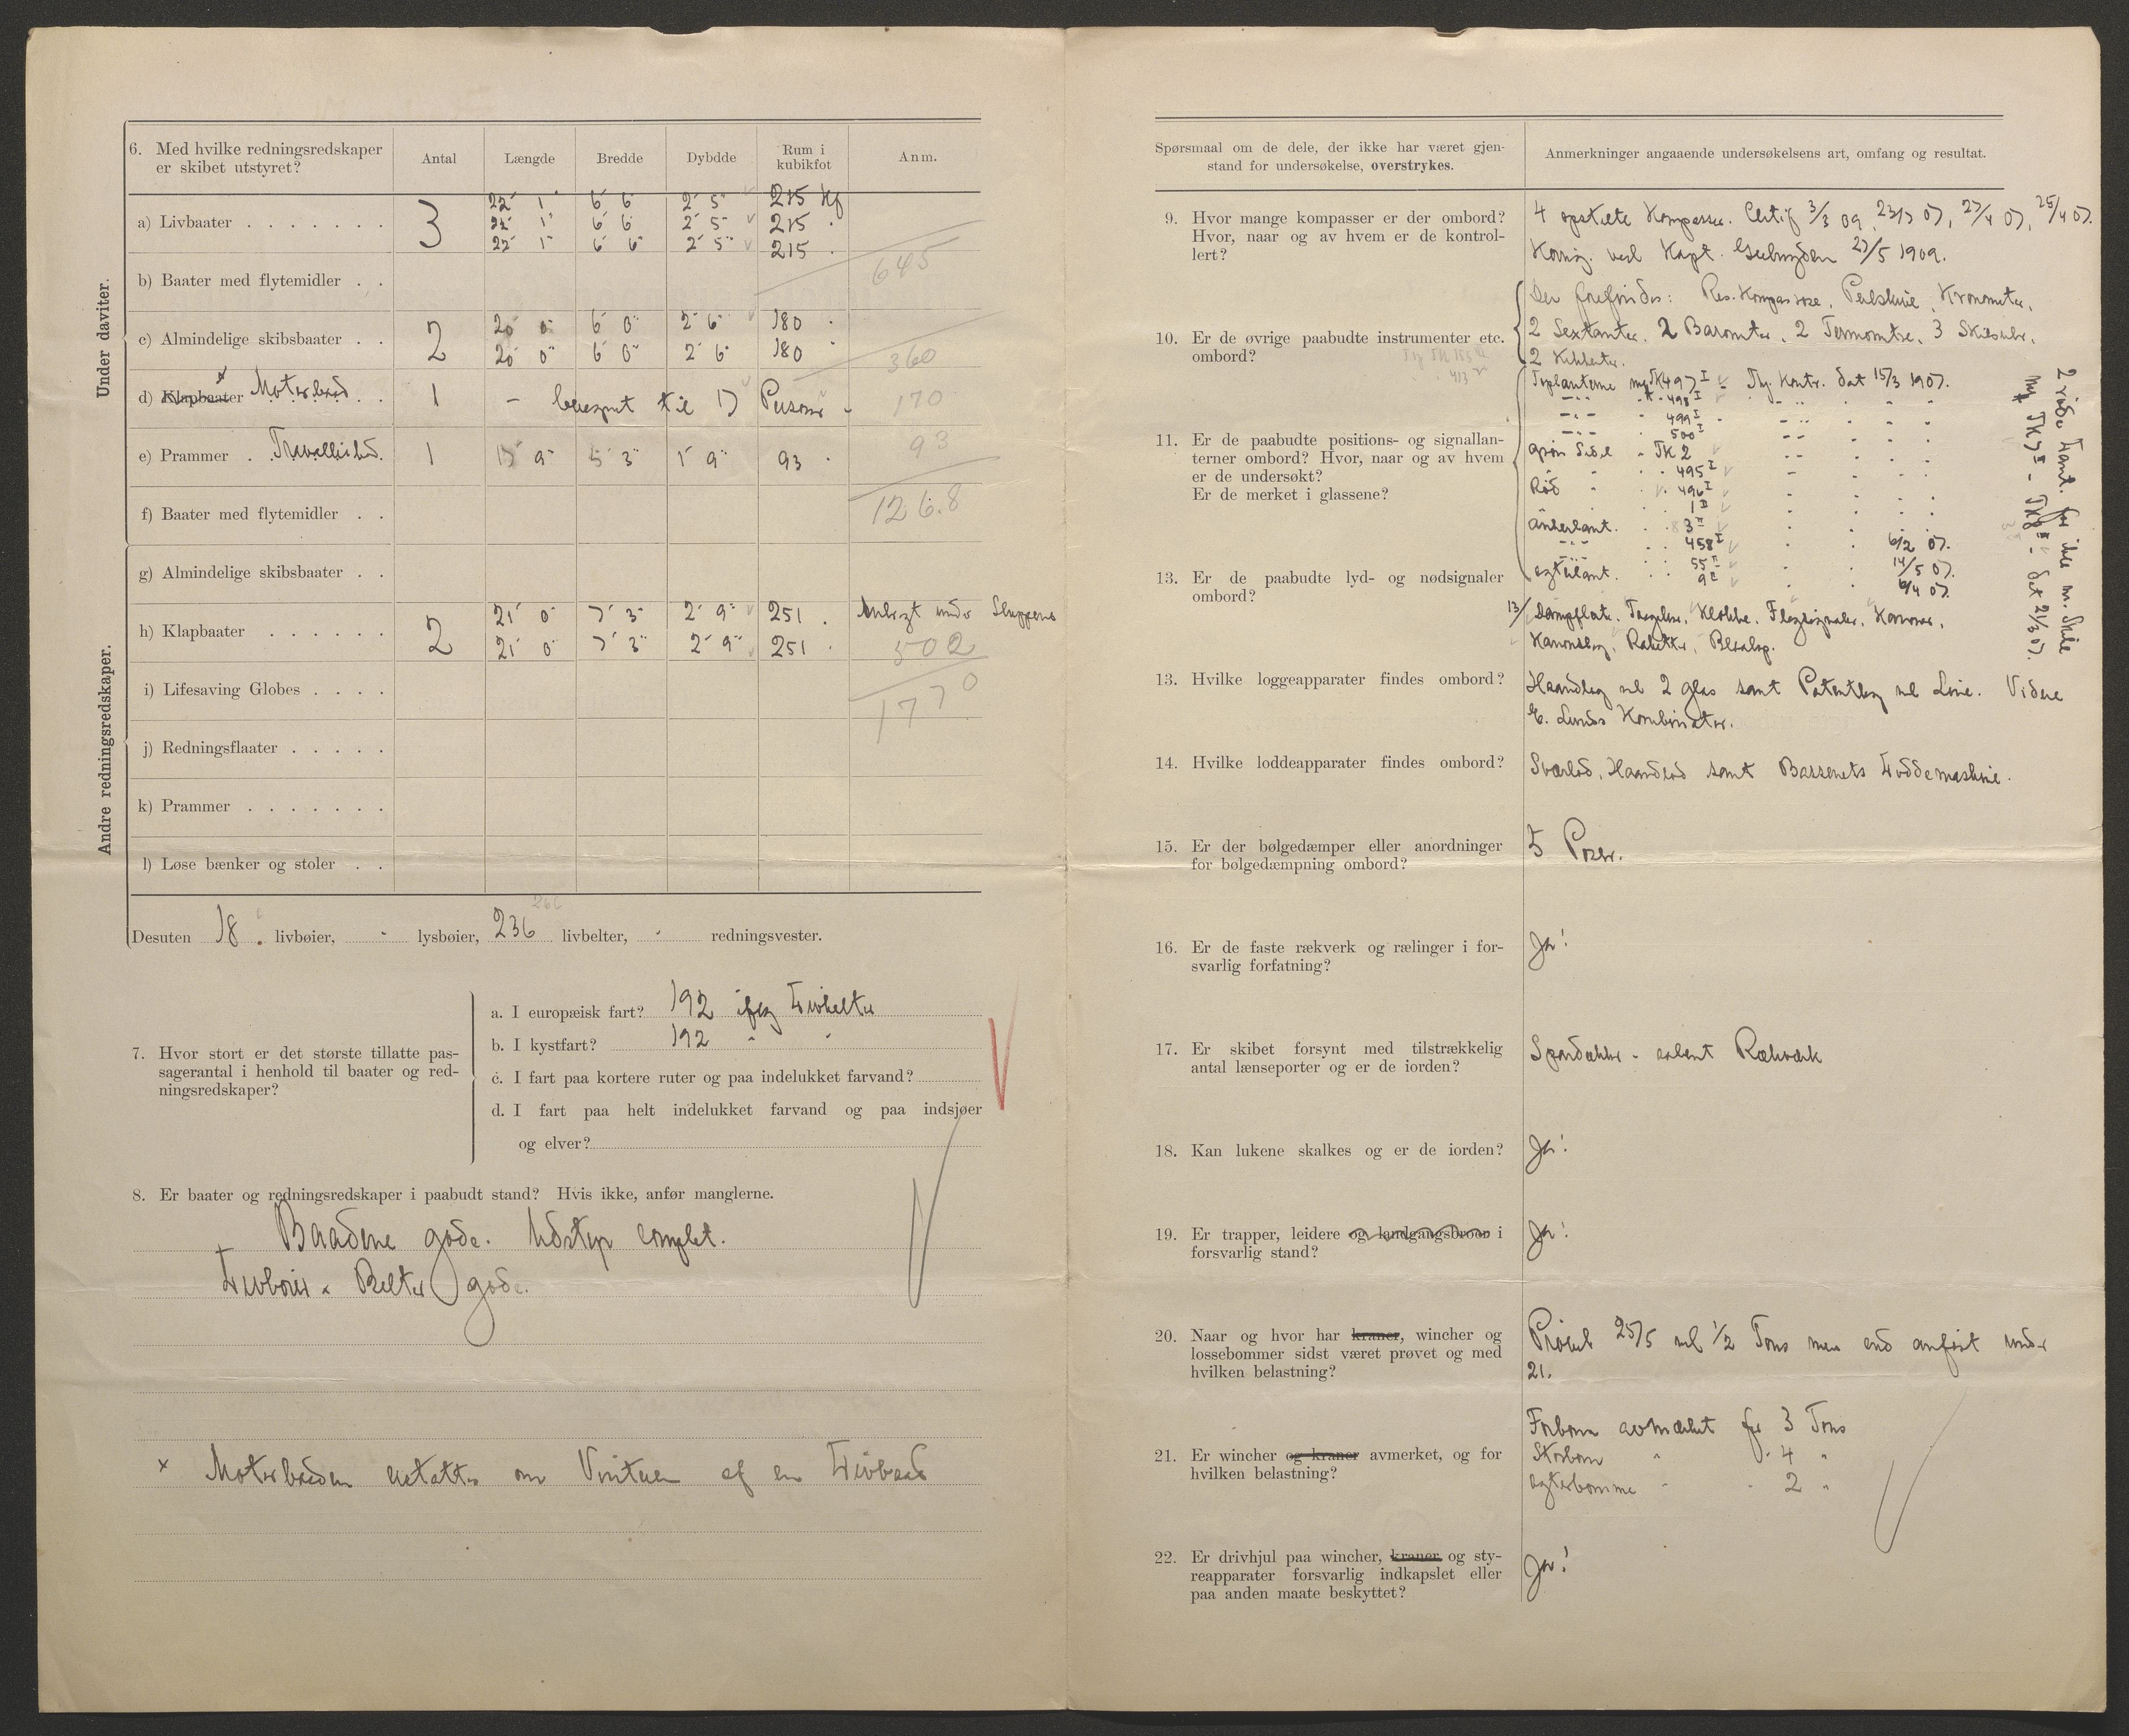 6. Med hvilke redningsredskaper er skibet utstyret?
Antal
Længde
Bredde
Dybdde
Rum i kubikfot
Anm.
Under daviter.
a) Livbaater . . . . . . . 3
22' 1" 6' 6" 2' 5" 215 Kf
22' 1" 6' 6" 2' 5" 215 "
22' 1" 6' 6" 2' 5" 215 "
645
b) Baater med flytemidler . .
c) Almindelige skibsbaater . . 2
20' 0" 6' 0" 2' 6" 180 "
20' 0" 6' 0" 2' 6" 180 "
360
d) Klapbaater x Motorbaad . . 1 - beregnet til 17 Personer - 170
e) Prammer . Travallijebaad. 1 15' 9" 5' 3" 1' 9" 93 " 93
1268
f) Baater med flytemidler . .
Andre redningsredskaper.
g) Almindelige skibsbaater . .
h) Klapbaater . . . . . . 2
21' 0" 7' 3" 2' 9" 251 " Anbragt under Sluppene
21' 0" 7' 3" 2' 9" 251 " 502
i) Lifesaving Globes . . . .
1770
j) Redningsflaater . . . . .
k) Prammer . . . . . . .
l) Løse bænker og stoler . .
260
Desuten 18. livbøier, - lysbøier, 236 livbelter, - redningsvester.
7. Hvor stort er det største tillatte passagerantal i henhold til baater og redningsredskaper?
a. I europæisk fart? 192 iflg Livbelter
b. I kystfart? 192 " "
c. I fart paa kortere ruter og paa indelukket farvand?
d. I fart paa helt indelukket farvand og paa indsjøer
og elver?
8. Er baater og redningsredskaper i paabudt stand? Hvis ikke, anfør manglerne.
Baadene gode. Udstyr complet.
Livbøier & Belter gode.
x Motorbaaden erstattes om Vinteren af en Livbaad
Spørsmaal om de dele, der ikke har været gjen-
stand for undersøkelse, overstrykes.
Anmerkninger angaaende undersøkelsens art, omfang og resultat.
9. Hvor mange kompasser er der ombord?
Hvor, naar og av hvem er de kontrol-
lert?
4 opstilte Kompasser. Certif 3/3 09, 23/3 07, 27/4 07, 25/4 07.
Korrig. ved Kapt. Geelmuyden 27/5 1909.
10. Er de øvrige paabudte instrumenter etc.
ombord?
Der forefindes: Res. Kompasrose, Peilskive, Kronometer,
2 Sextanter, 2 Barometer, 2 Termometre, 3 Skibsuhr,
2 Kikkerter.
11. Er de paabudte positions- og signallan-
terner ombord? Hvor, naar og av hvem
er de undersøkt?
Er de merket i glassene?
Toplanterne mrk TK 497 I - Thj. Kontr. dat 15/3 1907.
" 498 I
" 499 I
" 500 I
grøn Side - TK 2
" 495 I
Rød " 496 I
" 1 II
Ankerlant. " 3 II
" 458 I 6/2 07.
" 55 II 14/5 07.
agterlant. " 9 II 6/4 07
2 røde Lant. for ikke mr. Skib
mrk TK 7 II - TK 8 II - dat 21/3 07.
13. Er de paabudte lyd- og nødsignaler
ombord?
13/ Dampfløite. Taagelur, Klokke, Flagsignaler, Kanoner,
Kanonslag, Raketter, Blaalys.
13. Hvilke loggeapparater findes ombord?
Haandlog ml 2 glas samt Patentlog ml Line. Videre
E. Lunds Kombinator.
14. Hvilke loddeapparater findes ombord?
Sværlod, Haandlod samt Bassenets Loddemaskine.
15. Er der bølgedæmper eller anordninger
for bølgedæmpning ombord?
5 Poser.
16. Er de faste rækverk og rælinger i for-
svarlig forfatning?
Ja!
17. Er skibet forsynt med tilstrækkelig
antal lænseporter og er de iorden?
Spardækker - aabent Rækværk
18. Kan lukene skalkes og er de iorden?
Ja!
19. Er trapper, leidere og landgangsbroer i
forsvarlig stand?
Ja!
20. Naar og hvor har kraner, wincher og
lossebommer sidst været prøvet og med
hvilken belastning?
Prøvet 25/5 ml 1/2 Tons mer end anført under
21.
21. Er wincher og kraner avmerket, og for
hvilken belastning?
Forbom avmærket for 3 Tons
Storbom " " 4 "
Agterbomme " " 2 "
22. Er drivhjul paa wincher, kraner og sty-
reapparater forsvarlig indkapslet eller
paa anden maate beskyttet?
Ja!